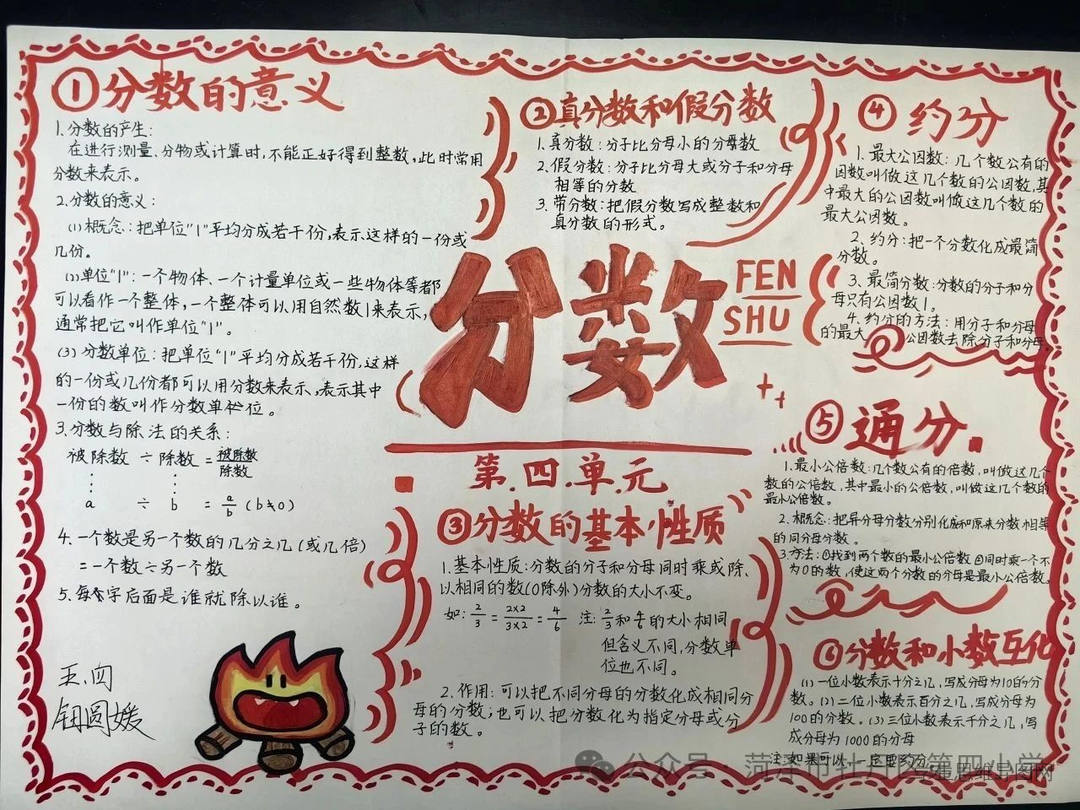 ①分数的意义
1.分数的产生:
在进行测量、分物或计算时,不能正好得到整数,此时常用
分数来表示。
2.分数的意义:
(1)概念:把单位"1"平均分成若干份,表示这样的一份或
几份。
(2)单位"1":一个物体、一个计量单位或一些物体等都
可以看作一个整体,一个整体可以用自然数1来表示,
通常把它叫作单位"1"。
(3)分数单位:把单位"1"平均分成若干份,这样
的一份或几份都可以用分数来表示,表示其中
一份的数叫作分数单位。
3.分数与除法的关系:
被除数 ÷ 除数 = 被除数/除数
a ÷ b = a/b (b≠0)
4.一个数是另一个数的几分之几(或几倍)
=一个数÷另一个数
5.每个字后面是谁就除以谁。
五.四
②真分数和假分数
1.真分数:分子比分母小的分数
2.假分数:分子比分母大或分子和分母
相等的分数
3.带分数:把假分数写成整数和
真分数的形式。
分数
FEN
SHU
第.四.单.元
③分数的基本性质
1.基本性质:分数的分子和分母同时乘或除、
以相同的数(0除外)分数的大小不变。
如: 2/3 = 2×2/3×2 = 4/6 注: 2/3和4/6的大小相同
但含义不同,分数单
位也不同。
2.作用:可以把不同分母的分数化成相同分
母的分数;也可以把分数化为指定分母或分
子的数。
④约分
1.最大公因数:几个数公有的
因数叫做这几个数的公因数,其
中最大的公因数叫做这几个数的
最大公因数。
2.约分:把一个分数化成最简
分数。
3.最简分数:分数的分子和分
母只有公因数1。
4.约分的方法:用分子和分母
的最大公因数去除分子和分母。
⑤通分.
1.最小公倍数:几个数公有的倍数,叫做这几个
数的公倍数,其中最小的公倍数,叫做这几个数的
最小公倍数。
2.概念:把异分母分数分别化成和原来分数相等
的同分母分数。
3.方法:①找到两个数的最小公倍数②同时乘一个不
为0的数,使这两个分数的分母是最小公倍数。
⑥分数和小数互化
(1)一位小数表示十分之几,写成分母为10的分
数。(2)二位小数表示百分之几,写成分母为
100的分数。(3)三位小数表示千分之几,写
成分母为1000的分母
注:如果可以,一定要约分
公众号·菏泽市牡丹区第四小学